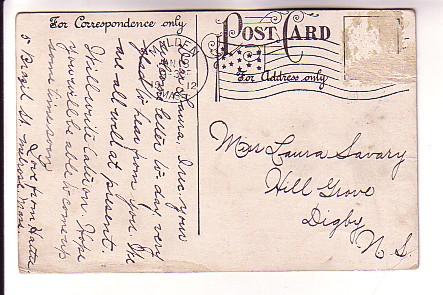 For Correspondence only
POST CARD
For Address only
MALDEN
12
MASS
Dear Laura, Irec. your
letter to day, very
glad to hear from you. We
are all well at present.
I will write later on. Hope
you will be able to come up
some time soon.
Love from Hattie,
5 St. Melrose Mass.
Miss Laura Savary
Hill Grove
Digby
N. S.